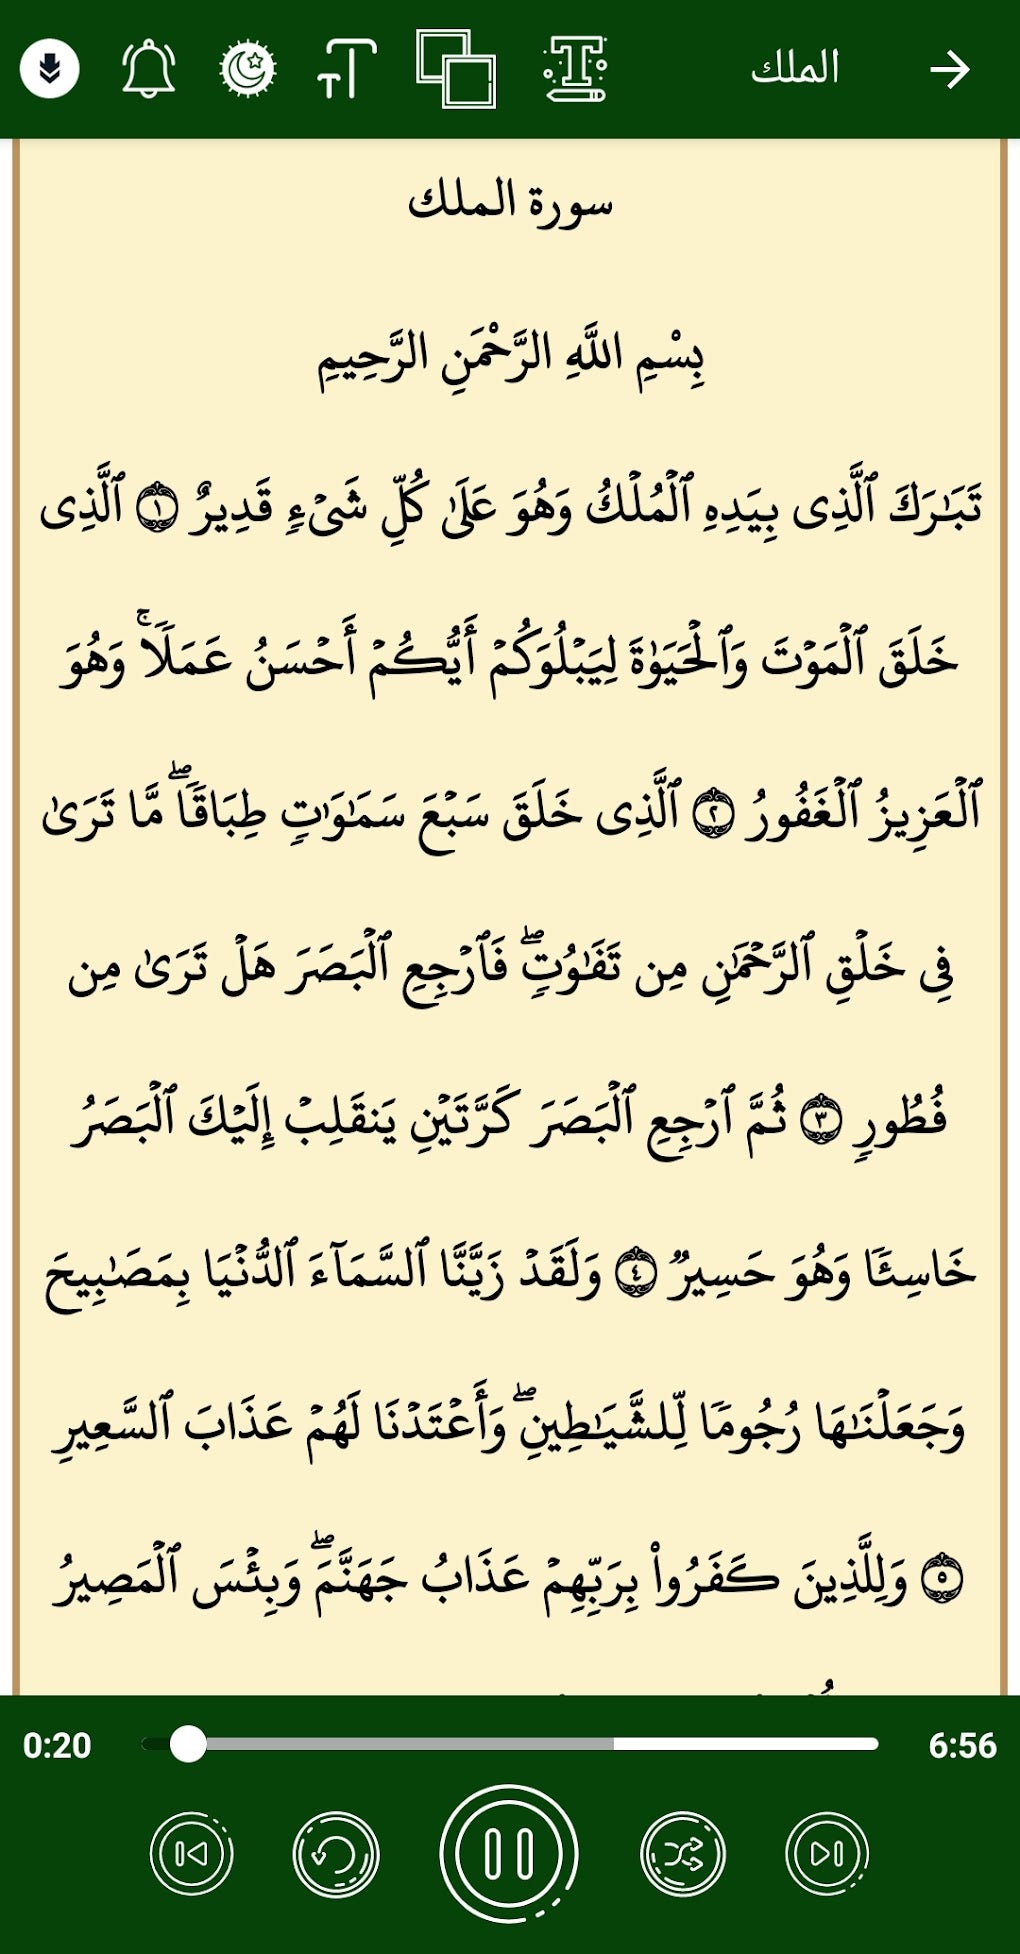 الملك
سورة الملك
بِسْمِ اللَّهِ الرَّحْمَنِ الرَّحِيمِ
تَبَـٰرَكَ ٱلَّذِى بِيَدِهِ ٱلْمُلْكُ وَهُوَ عَلَىٰ كُلِّ شَىْءٍۢ قَدِيرٌ ١ ٱلَّذِى
خَلَقَ ٱلْمَوْتَ وَٱلْحَيَوٰةَ لِيَبْلُوَكُمْ أَيُّكُمْ أَحْسَنُ عَمَلًۭا ۚ وَهُوَ
ٱلْعَزِيزُ ٱلْغَفُورُ ٢ ٱلَّذِى خَلَقَ سَبْعَ سَمَـٰوَٰتٍۢ طِبَاقًۭا ۖ مَّا تَرَىٰ
فِى خَلْقِ ٱلرَّحْمَـٰنِ مِن تَفَـٰوُتٍۢ ۖ فَٱرْجِعِ ٱلْبَصَرَ هَلْ تَرَىٰ مِن
فُطُورٍۢ ٣ ثُمَّ ٱرْجِعِ ٱلْبَصَرَ كَرَّتَيْنِ يَنقَلِبْ إِلَيْكَ ٱلْبَصَرُ
خَاسِئًۭا وَهُوَ حَسِيرٌۭ ٤ وَلَقَدْ زَيَّنَّا ٱلسَّمَآءَ ٱلدُّنْيَا بِمَصَـٰبِيحَ
وَجَعَلْنَـٰهَا رُجُومًۭا لِّلشَّيَـٰطِينِ ۖ وَأَعْتَدْنَا لَهُمْ عَذَابَ ٱلسَّعِيرِ
٥ وَلِلَّذِينَ كَفَرُوا۟ بِرَبِّهِمْ عَذَابُ جَهَنَّمَ ۖ وَبِئْسَ ٱلْمَصِيرُ
0:20 6:56